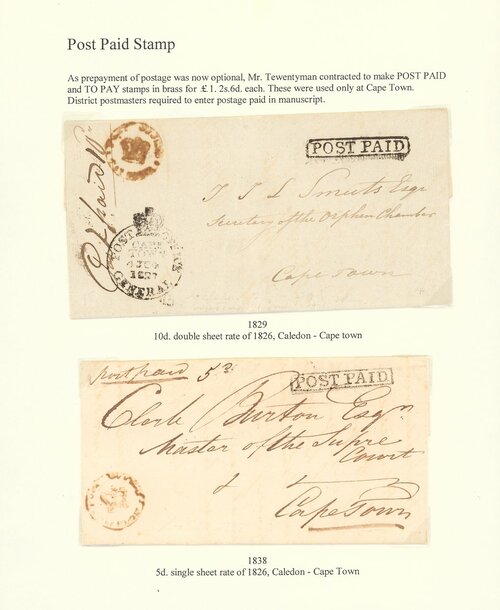 Post Paid Stamp
As prepayment of postage was now optional, Mr. Tewentyman contracted to make POST PAID
and TO PAY stamps in brass for £1. 2s.6d. each. These were used only at Cape Town.
District postmasters required to enter postage paid in manuscript.
POST PAID
paid
T J L Smuts Esqr
Secretary of the Orphan Chamber
Cape Town
POST OFFICE
CAPE
TOWN
GENERAL
1829
10d. double sheet rate of 1826, Caledon - Cape town
post paid 5d
POST PAID
Clerk Burton Esqr
Master of the Supre
Court
Cape Town
1838
5d. single sheet rate of 1826, Caledon - Cape Town